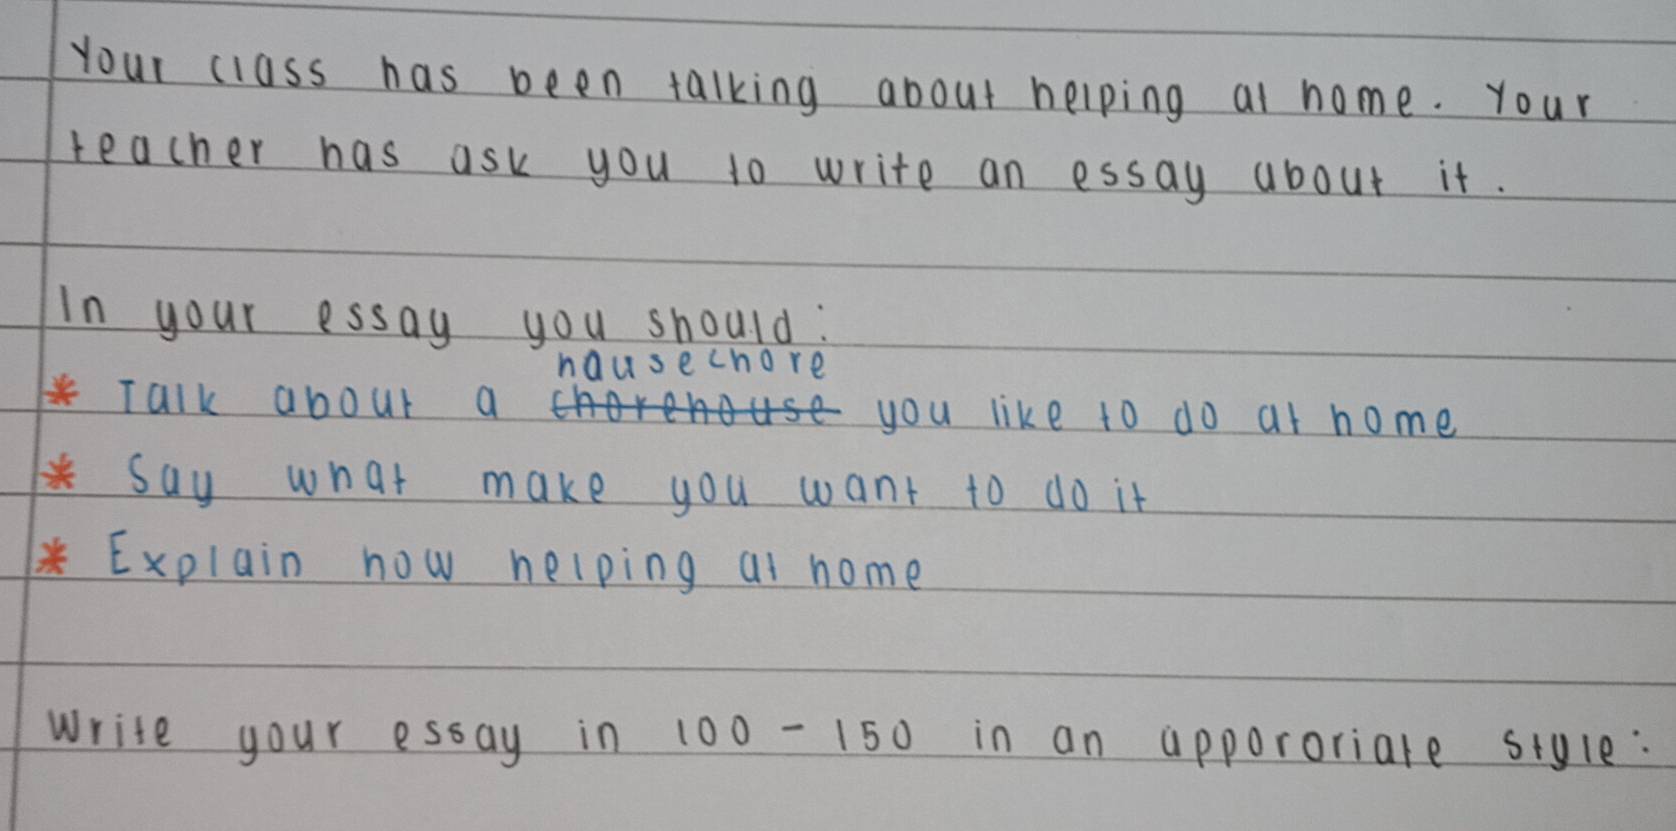 Your class has been talking about helping at home. Your
teacher has ask you to write an essay about it.
In your essay you should:
hausechore
* Talk about a chorehouse you like to do at home
* Say what make you want to do it
* Explain how helping at home
Write your essay in 100 - 150 in an appororiate style: